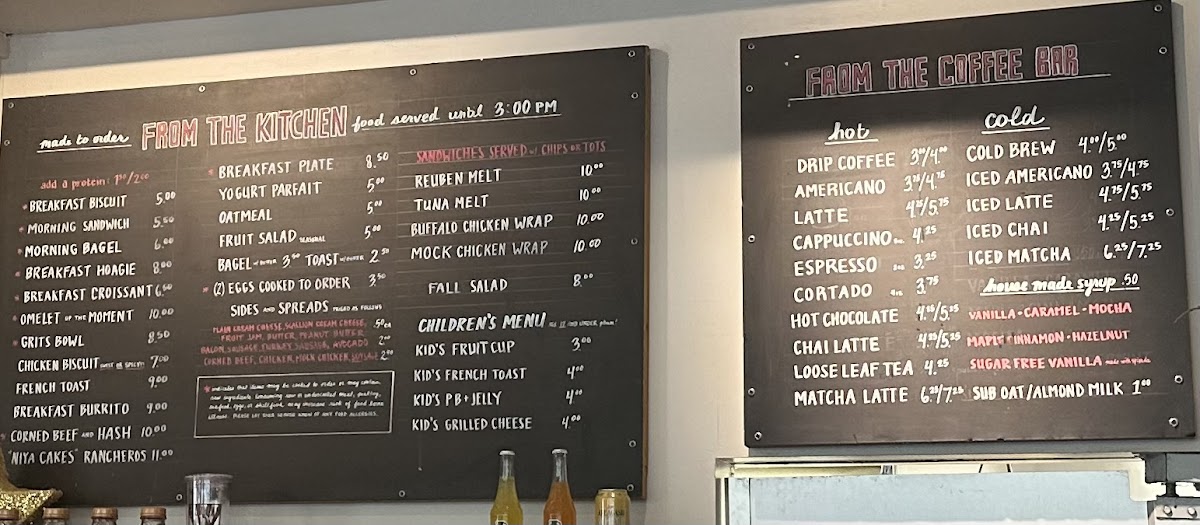 made to order FROM THE KITCHEN food served until 3:00 PM
add a protein: 1⁵⁰/2⁰⁰
* BREAKFAST BISCUIT 5.00
* MORNING SANDWICH 5.50
* MORNING BAGEL 6.00
* BREAKFAST HOAGIE 8.00
* BREAKFAST CROISSANT 6.50
* OMELET OF THE MOMENT 10.00
* GRITS BOWL 8.50
CHICKEN BISCUIT (HOT OR SPICY!) 7.00
FRENCH TOAST 9.00
BREAKFAST BURRITO 9.00
CORNED BEEF AND HASH 10.00
"NIYA CAKES" RANCHEROS 11.00
* BREAKFAST PLATE 8.50
YOGURT PARFAIT 5.00
OATMEAL 5.00
FRUIT SALAD SEASONAL 5.00
BAGEL W/ BUTTER 3.50 TOAST W/ BUTTER 2.50
* (2) EGGS COOKED TO ORDER 3.50
SIDES AND SPREADS PRICED AS FOLLOWS
PLAIN CREAM CHEESE, SCALLION CREAM CHEESE,
FRUIT JAM, BUTTER, PEANUT BUTTER .50 EA
BACON, SAUSAGE, TURKEY SAUSAGE, AVOCADO 2.00
CORNED BEEF, CHICKEN, MOCK CHICKEN, SAUSAGE 2.00
* indicates that items may be cooked to order or may contain
raw ingredients. Consuming raw or undercooked meat, poultry,
seafood, eggs, or shellfish, may increase risk of food borne
illness. PLEASE LET YOUR SERVER KNOW OF ANY FOOD ALLERGIES.
SANDWICHES SERVED w/ CHIPS OR TOTS
REUBEN MELT 10.00
TUNA MELT 10.00
BUFFALO CHICKEN WRAP 10.00
MOCK CHICKEN WRAP 10.00
FALL SALAD 8.00
CHILDREN'S MENU AGE 12 AND UNDER please!
KID'S FRUIT CUP 3.00
KID'S FRENCH TOAST 4.00
KID'S PB+JELLY 4.00
KID'S GRILLED CHEESE 4.00
FROM THE COFFEE BAR
hot
DRIP COFFEE 3.00/4.00
AMERICANO 3.75/4.75
LATTE 4.75/5.75
CAPPUCCINO 4.25
ESPRESSO 3.25
CORTADO 3.75
HOT CHOCOLATE 4.25/5.25
CHAI LATTE 4.25/5.25
LOOSE LEAF TEA 4.25
MATCHA LATTE 6.25/7.25
cold
COLD BREW 4.00/5.00
ICED AMERICANO 3.75/4.75
ICED LATTE 4.75/5.75
ICED CHAI 4.25/5.25
ICED MATCHA 6.25/7.25
house made syrup .50
VANILLA · CARAMEL · MOCHA
MAPLE CINNAMON · HAZELNUT
SUGAR FREE VANILLA made with splenda
SUB OAT/ALMOND MILK 1.00